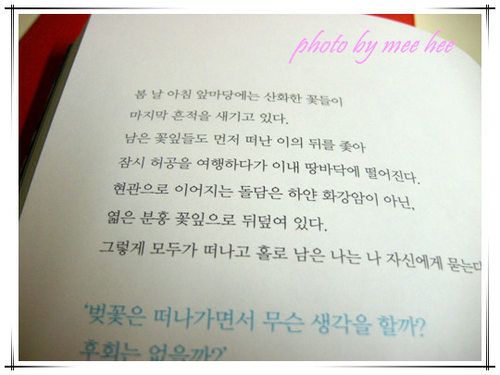 photo by mee hee
봄 날 아침 앞마당에는 산화한 꽃들이
마지막 흔적을 새기고 있다.
남은 꽃잎들도 먼저 떠난 이의 뒤를 좇아
잠시 허공을 여행하다가 이내 땅바닥에 떨어진다.
현관으로 이어지는 돌담은 하얀 화강암이 아닌,
엷은 분홍 꽃잎으로 뒤덮여 있다.
그렇게 모두가 떠나고 홀로 남은 나는 나 자신에게 묻는다
'벚꽃은 떠나가면서 무슨 생각을 할까?
후회는 없을까?'